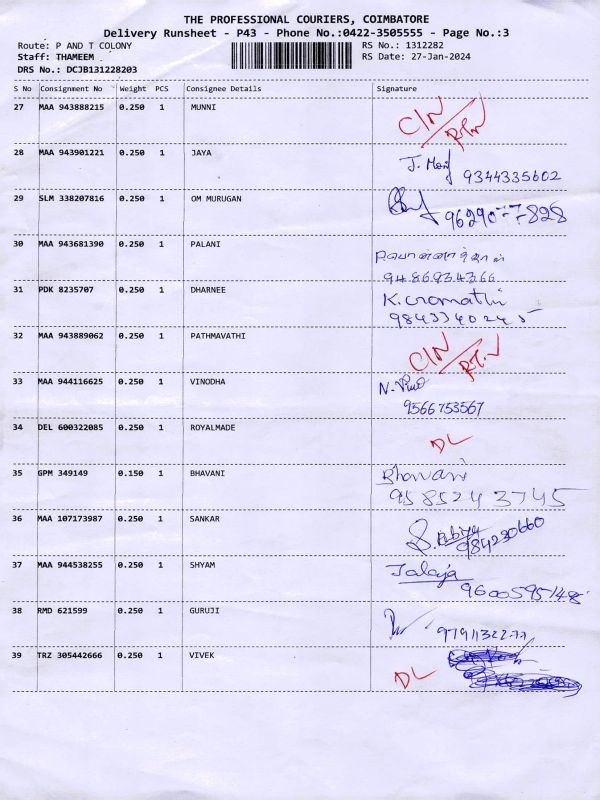 THE PROFESSIONAL COURIERS, COIMBATORE
Delivery Runsheet - P43 - Phone No.:0422-3505555 - Page No.:3
Route: P AND T COLONY
RS No.: 1312282
Staff: THAMEEM
RS Date: 27-Jan-2024
DRS No.: DCJB131228203
S No Consignment No Weight PCS Consignee Details Signature
27 MAA 943888215 0.250 1 MUNNI C/N RTN
28 MAA 943901221 0.250 1 JAYA J. 9344335602
29 SLM 338207816 0.250 1 OM MURUGAN
30 MAA 943681390 0.250 1 PALANI
9486934366
31 PDK 8235707 0.250 1 DHARNEE K.
9843340245
32 MAA 943889062 0.250 1 PATHMAVATHI C/N RTN
33 MAA 944116625 0.250 1 VINODHA N.
9566753567
34 DEL 600322085 0.250 1 ROYALMADE DL
35 GPM 349149 0.150 1 BHAVANI Bhavani
9585243745
36 MAA 107173987 0.250 1 SANKAR
984230660
37 MAA 944538255 0.250 1 SHYAM Jalaja
9600595148
38 RMD 621599 0.250 1 GURUJI
39 TRZ 305442666 0.250 1 VIVEK DL